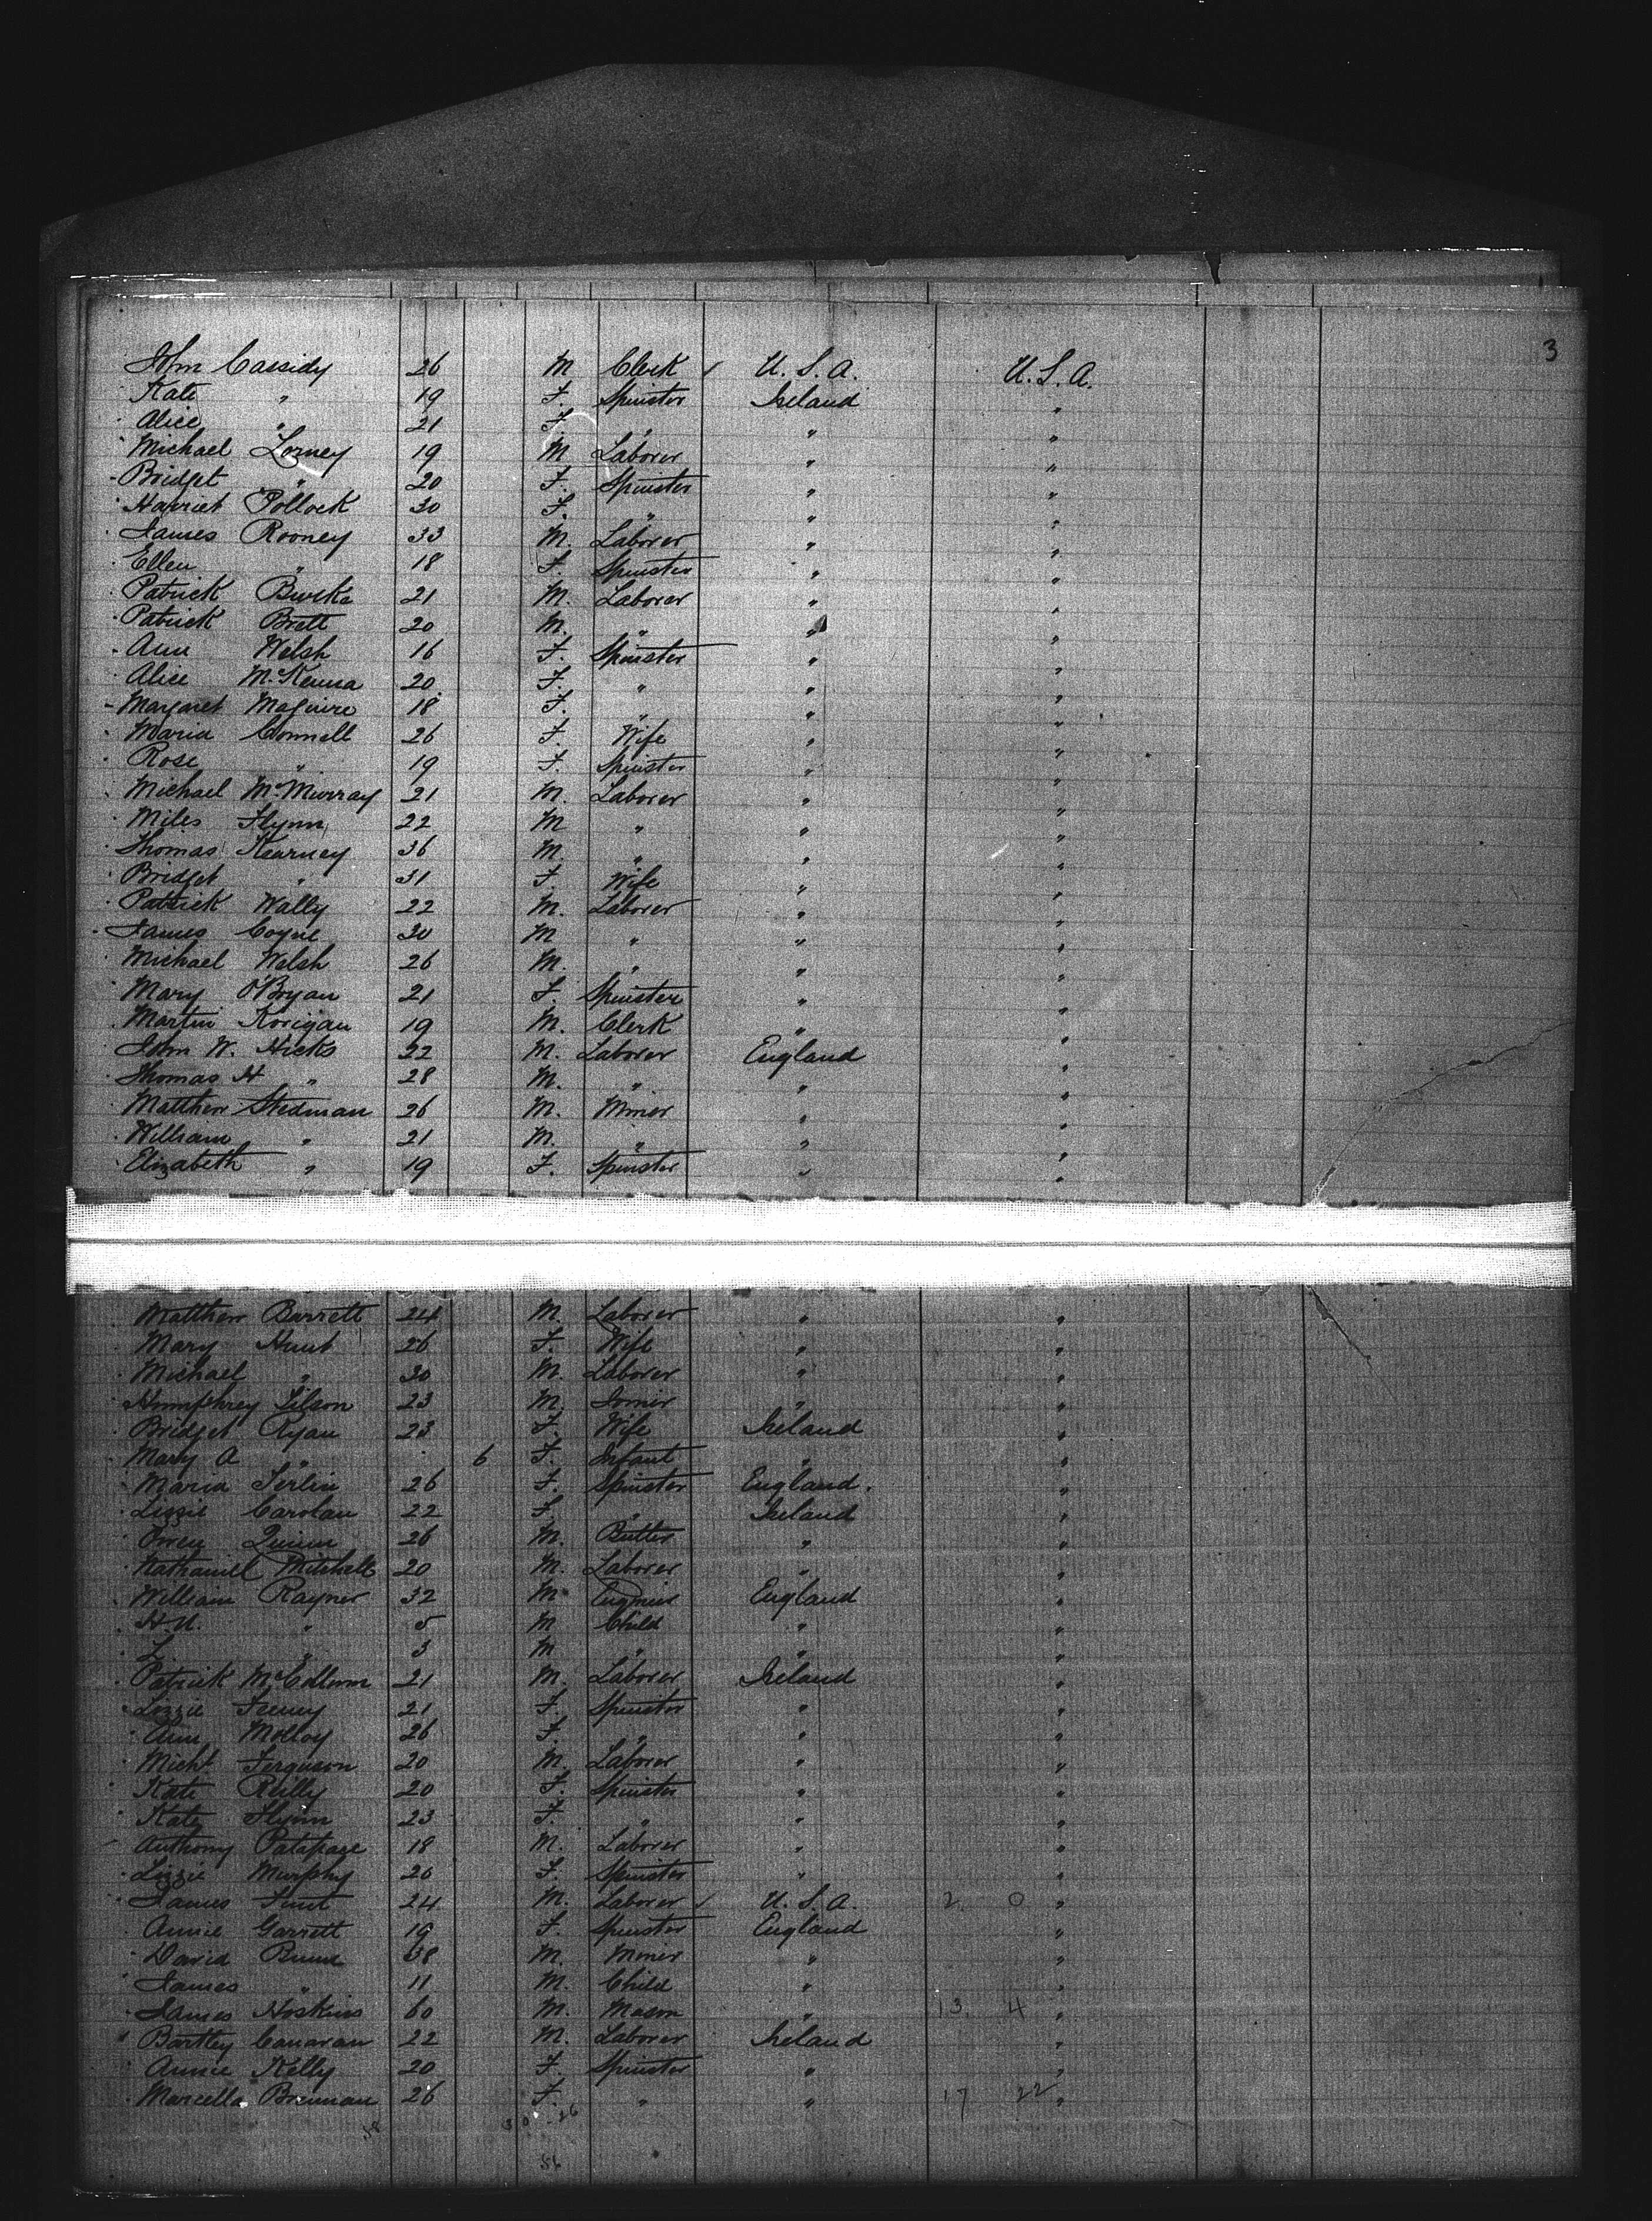 3
John Cassidy 26 M Clerk / U.S.A. U.S.A.
Kate " 19 F. Spinster Ireland "
Alice " 21 F. " " "
Michael 19 M Laborer " "
Bridget " 20 F. Spinster " "
Harriet Pollock 30 F. " " "
James Rooney 33 M. Laborer " "
Ellen " 18 F. Spinster " "
Patrick Burke 21 M. Laborer " "
Patrick Brett 20 M. " " "
Ann Welsh 16 F. Spinster " "
Alice McKenna 20 F. " " "
Margaret Maguire 18 F. " " "
Maria Connell 26 F. Wife " "
Rose " 19 F. Spinster " "
Michael McMurray 21 M. Laborer " "
Miles Flynn 22 M " " "
Thomas Kearney 36 M. " " "
Bridget " 31 F. Wife " "
Patrick Wally 22 M. Laborer " "
James Coyne 30 M " " "
Michael Welsh 26 M. " " "
Mary O'Bryan 21 F. Spinster " "
Martin Korigan 19 M. Clerk " "
John W. Hicks 22 M. Laborer England "
Thomas H " 28 M. " " "
Matthew Stedman 26 M. Miner " "
William " 21 M. " " "
Elizabeth " 19 F. Spinster " "
Matthew Barrett 24 M. Laborer " "
Mary Hunt 26 F. Wife " "
Michael " 30 M. Laborer " "
Humphrey 23 M. " "
Bridget Ryan 23 F. Wife Ireland "
Mary A " 6 F. Infant " "
Maria 26 F. Spinster England. "
Lizzie Carolan 22 F. " Ireland "
Owen Quinn 26 M. Butler " "
Nathaniel Mitchell 20 M. Laborer " "
William Rayner 32 M. Engineer England "
" 5 M Child " "
" 3 M " " "
Patrick 21 M. Laborer Ireland "
Lizzie Feeney 21 F. Spinster " "
Ann Molloy 26 F. " " "
Michl Ferguson 20 M. Laborer " "
Kate Reilly 20 F. Spinster " "
Kate Flynn 23 F. " " "
Anthony 18 M. Laborer " "
Lizzie Murphy 20 F. Spinster " "
James 24 M. Laborer / U.S.A. 2 0 "
Annie Garrett 19 F. Spinster England "
David 38 M. Miner " "
James " 11 M. Child " "
James Hoskins 60 M. Mason " 13 4 "
Bartley Canavan 22 M. Laborer Ireland "
Annie Kelly 20 F. Spinster " "
Marcella Brennan 26 F. " " 17 22 "
56